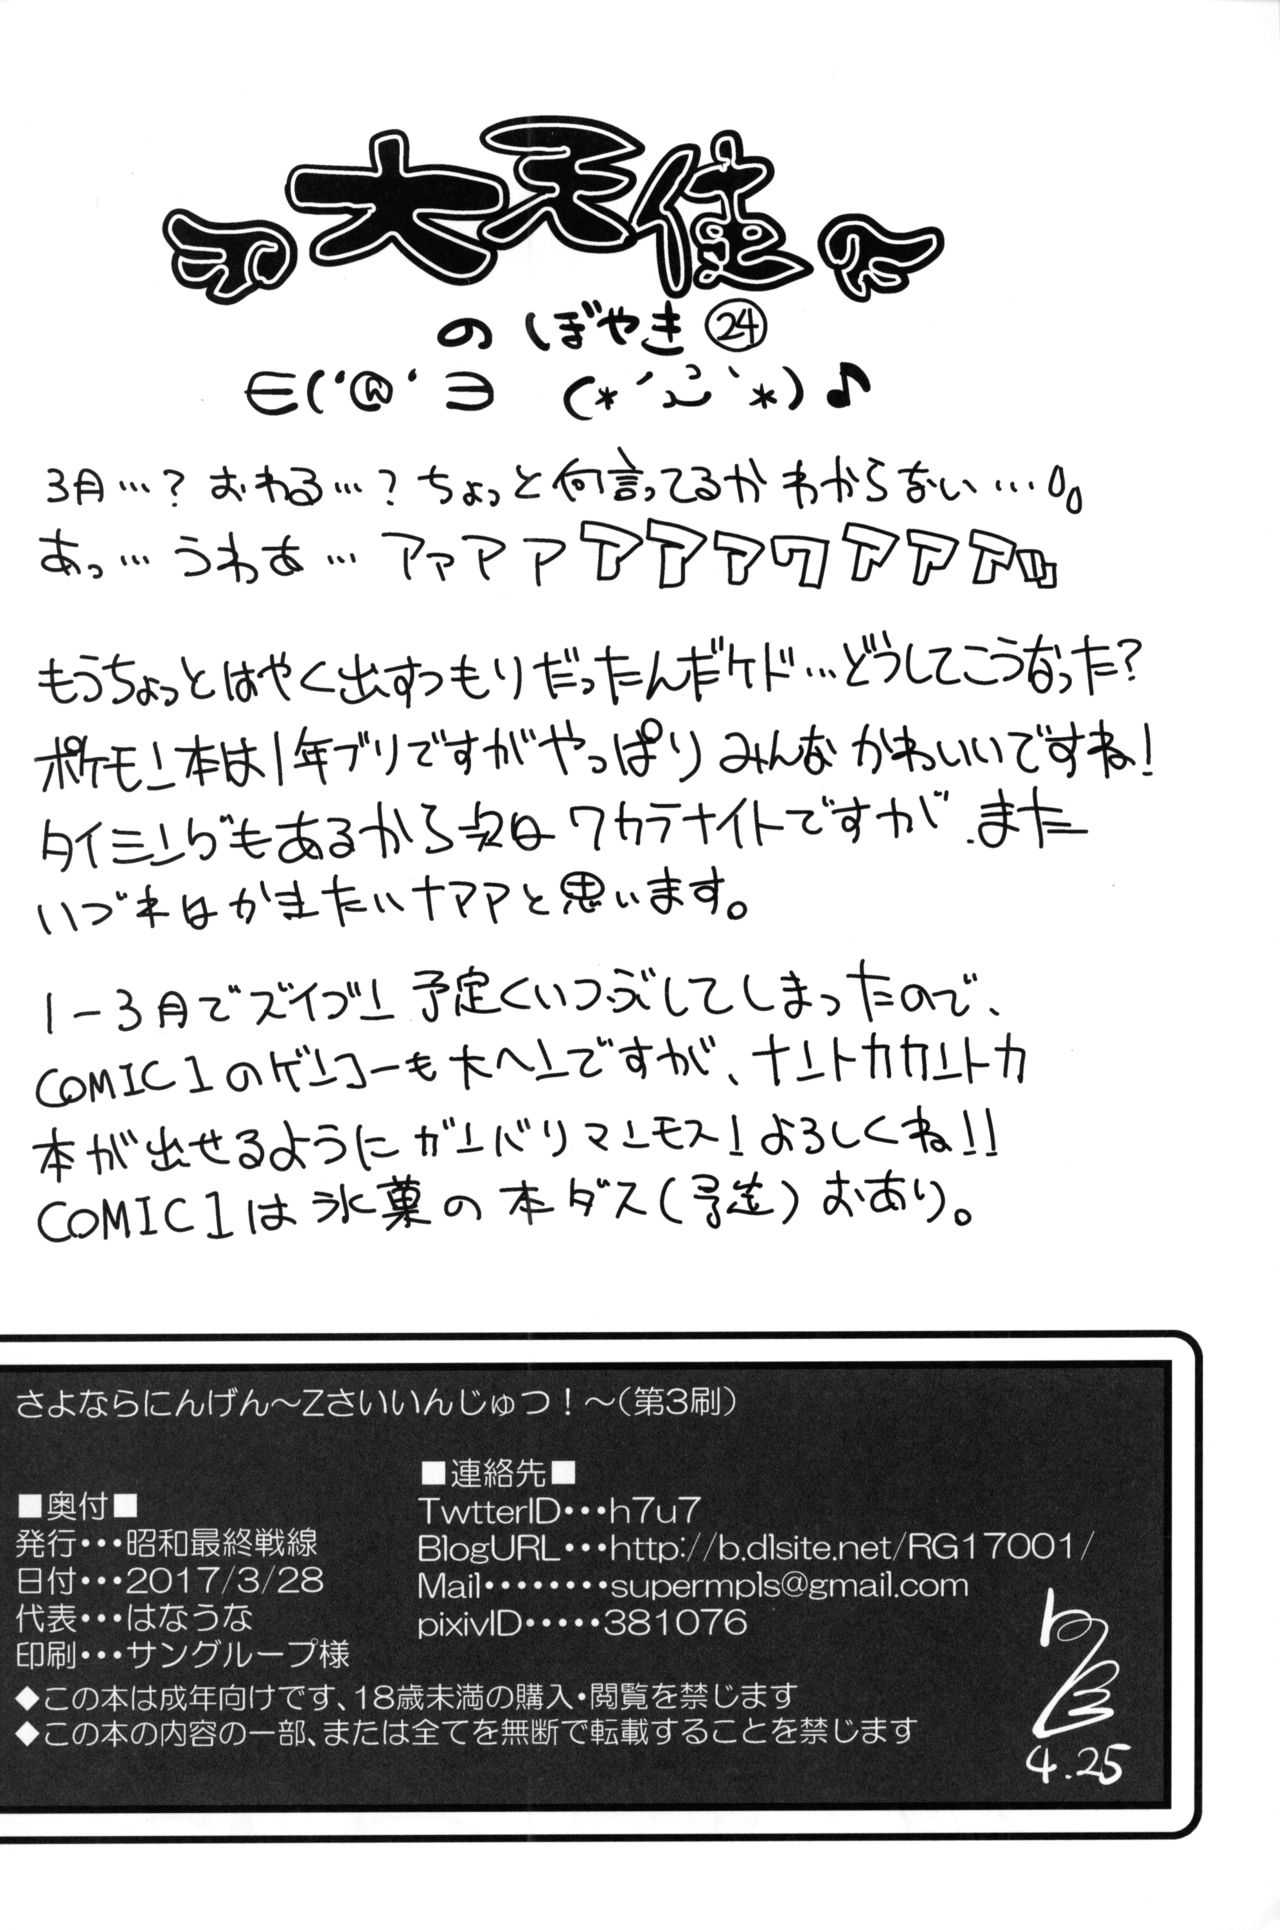 大天使
のぼやき㉔
∈('@'∋ (*´ω`*)♪
3月…?おわる…?ちょっと何言ってるかわからない…
あっ…うわぁ…アァアァアアァワアアアッ
もうちょっとはやく出すつもりだったんだケド…どうしてこうなった?
ポケモン本は1年ブリですがやっぱりみんなかわいいですね!
タイミングもあるから次はワカラナイトですが、また
いづれはかきたいナアアと思います。
1-3月でズイブン予定くいつぶしてしまったので、
COMIC1のゲンコーも大ヘンですが、ナントカカントカ
本が出せるようにガンバリマンモス!よろしくね!!
COMIC1は氷菓の本ダス(予定)おあり。
さよならにんげん～Zさいいんじゅつ!～(第3刷)
■奥付■
発行・・・昭和最終戦線
日付・・・2017/3/28
代表・・・はなうな
印刷・・・サングループ様
■連絡先■
TwtterID・・・h7u7
BlogURL・・・http://b.dlsite.net/RG17001/
Mail・・・・・・・・supermpls@gmail.com
pixivID・・・・・381076
◆この本は成年向けです、18歳未満の購入・閲覧を禁じます
◆この本の内容の一部、または全てを無断で転載することを禁じます
4.25